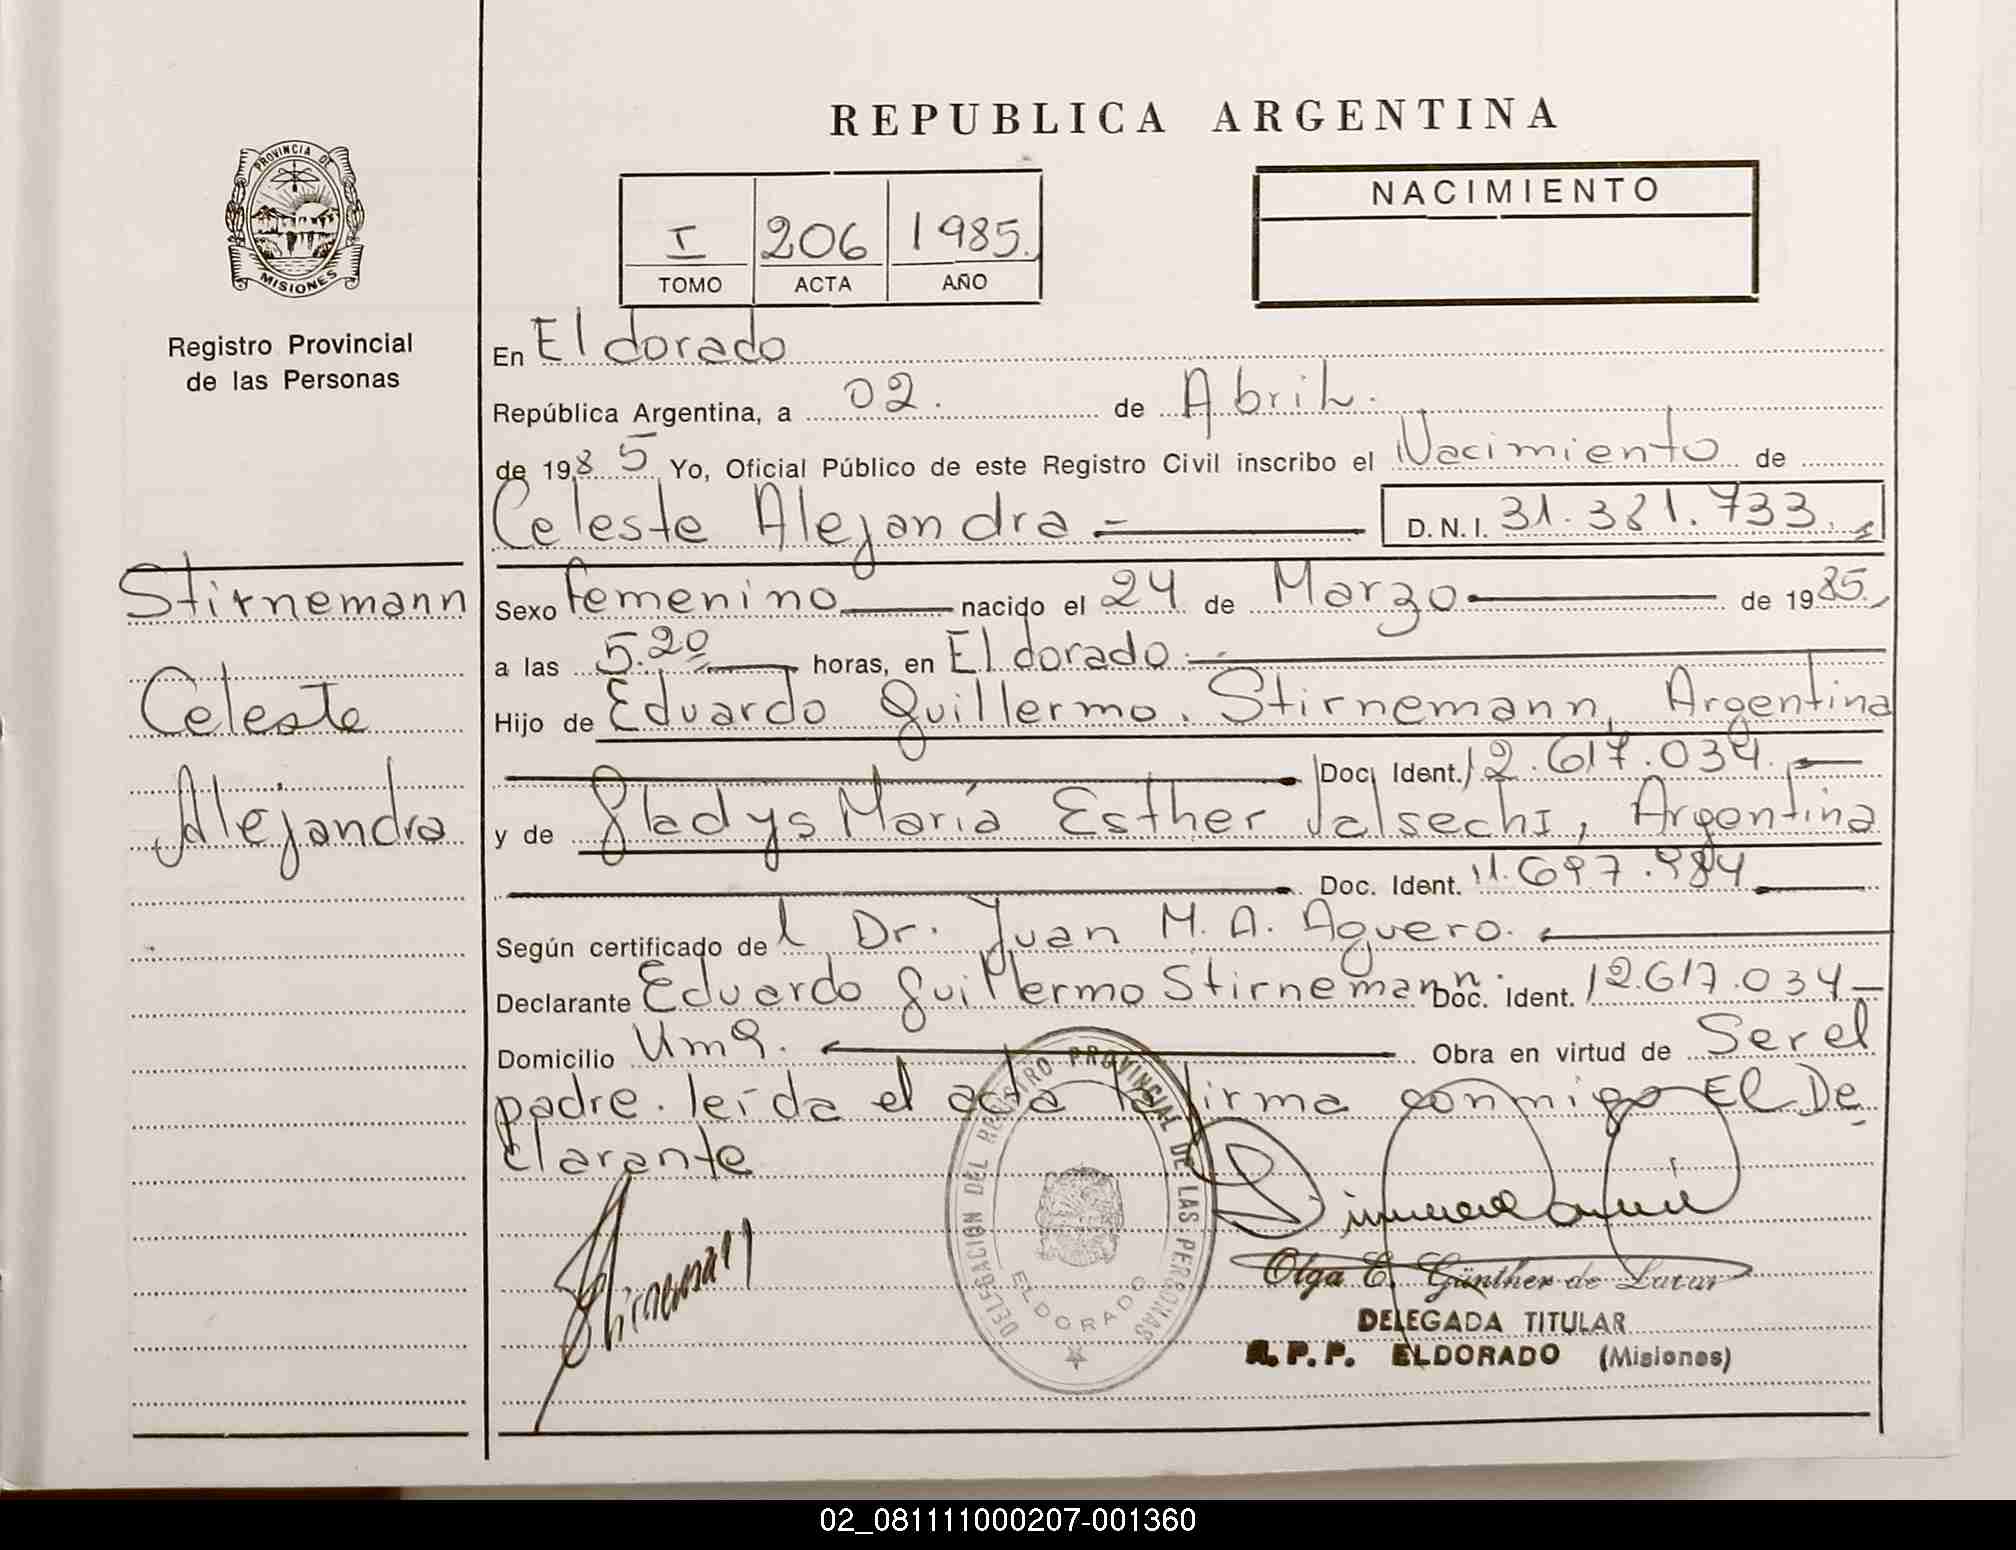 REPUBLICA ARGENTINA
PROVINCIA DE
MISIONES
Registro Provincial
de las Personas
NACIMIENTO
I 206 1985.
TOMO ACTA AÑO
En Eldorado
República Argentina, a 02. de Abril.
de 1985 Yo, Oficial Público de este Registro Civil inscribo el Nacimiento de
Celeste Alejandra D.N.I. 31.381.733.
Stirnemann
Celeste
Alejandra
Sexo femenino nacido el 24 de Marzo de 1985
a las 5.20 horas, en Eldorado
Hijo de Eduardo Guillermo. Stirnemann, Argentina
Doc. Ident. 12.617.034.
y de Gladys María Esther Argentina
Doc. Ident. 11.697.984
Según certificado del Dr. Juan M. A. Aguero.
Declarante Eduardo Guillermo Stirnemann. Doc. Ident. 12.617.034
Domicilio Obra en virtud de Ser el
padre. leída el acta la firma conmigo El De
clarante
Stirnemann
DELEGACION DEL REGISTRO PROVINCIAL DE LAS PERSONAS
ELDORADO
Olga E. Günther de
DELEGADA TITULAR
R.P.P. ELDORADO (Misiones)
02_081111000207-001360